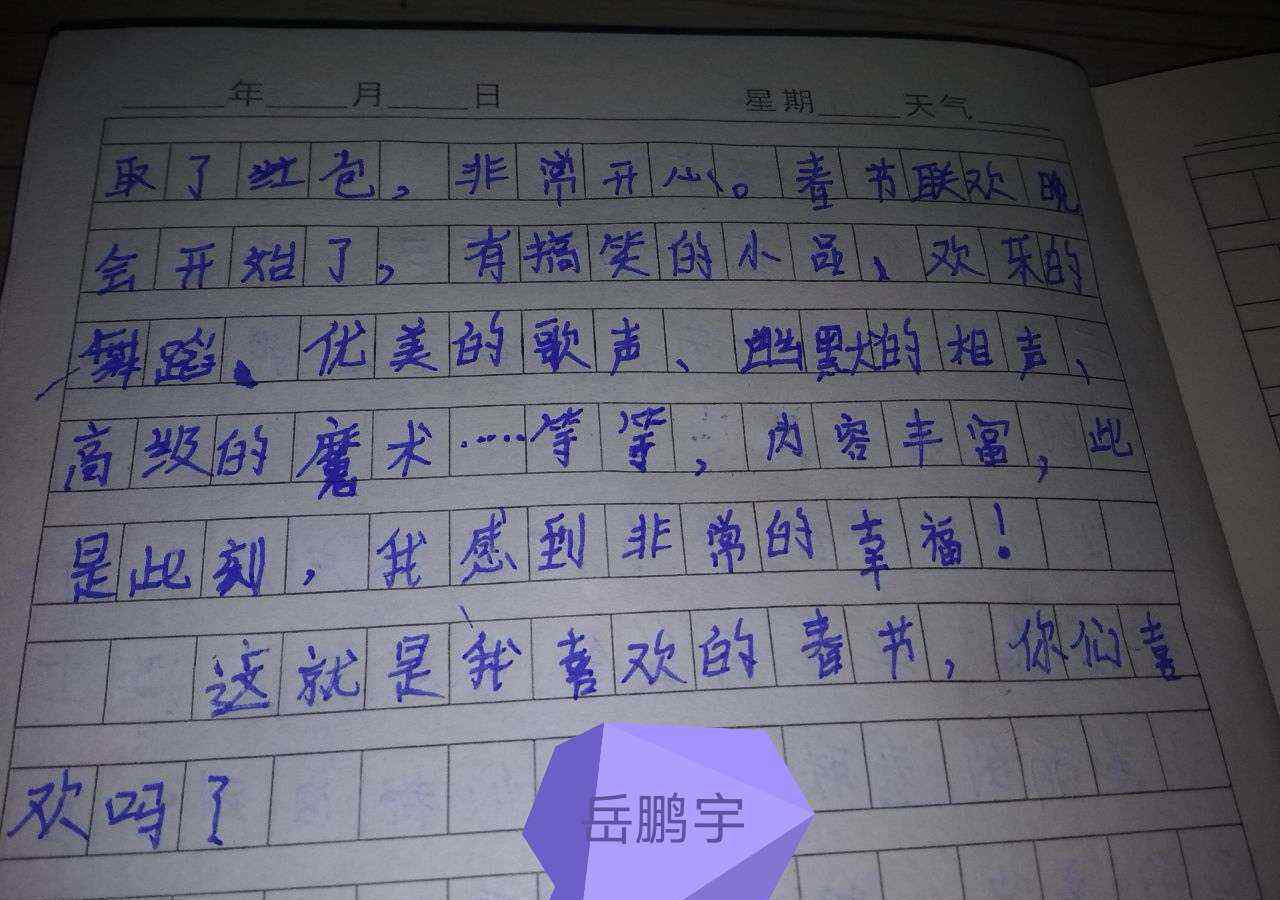 ____年____月____日 星期____天气____
取了红包,非常开心。春节联欢晚
会开始了,有搞笑的小品、欢乐的
舞蹈、优美的歌声、幽默的相声、
高级的魔术……等等,内容丰富,此
是此刻,我感到非常的幸福!
这就是我喜欢的春节,你们喜
欢吗?
岳鹏宇